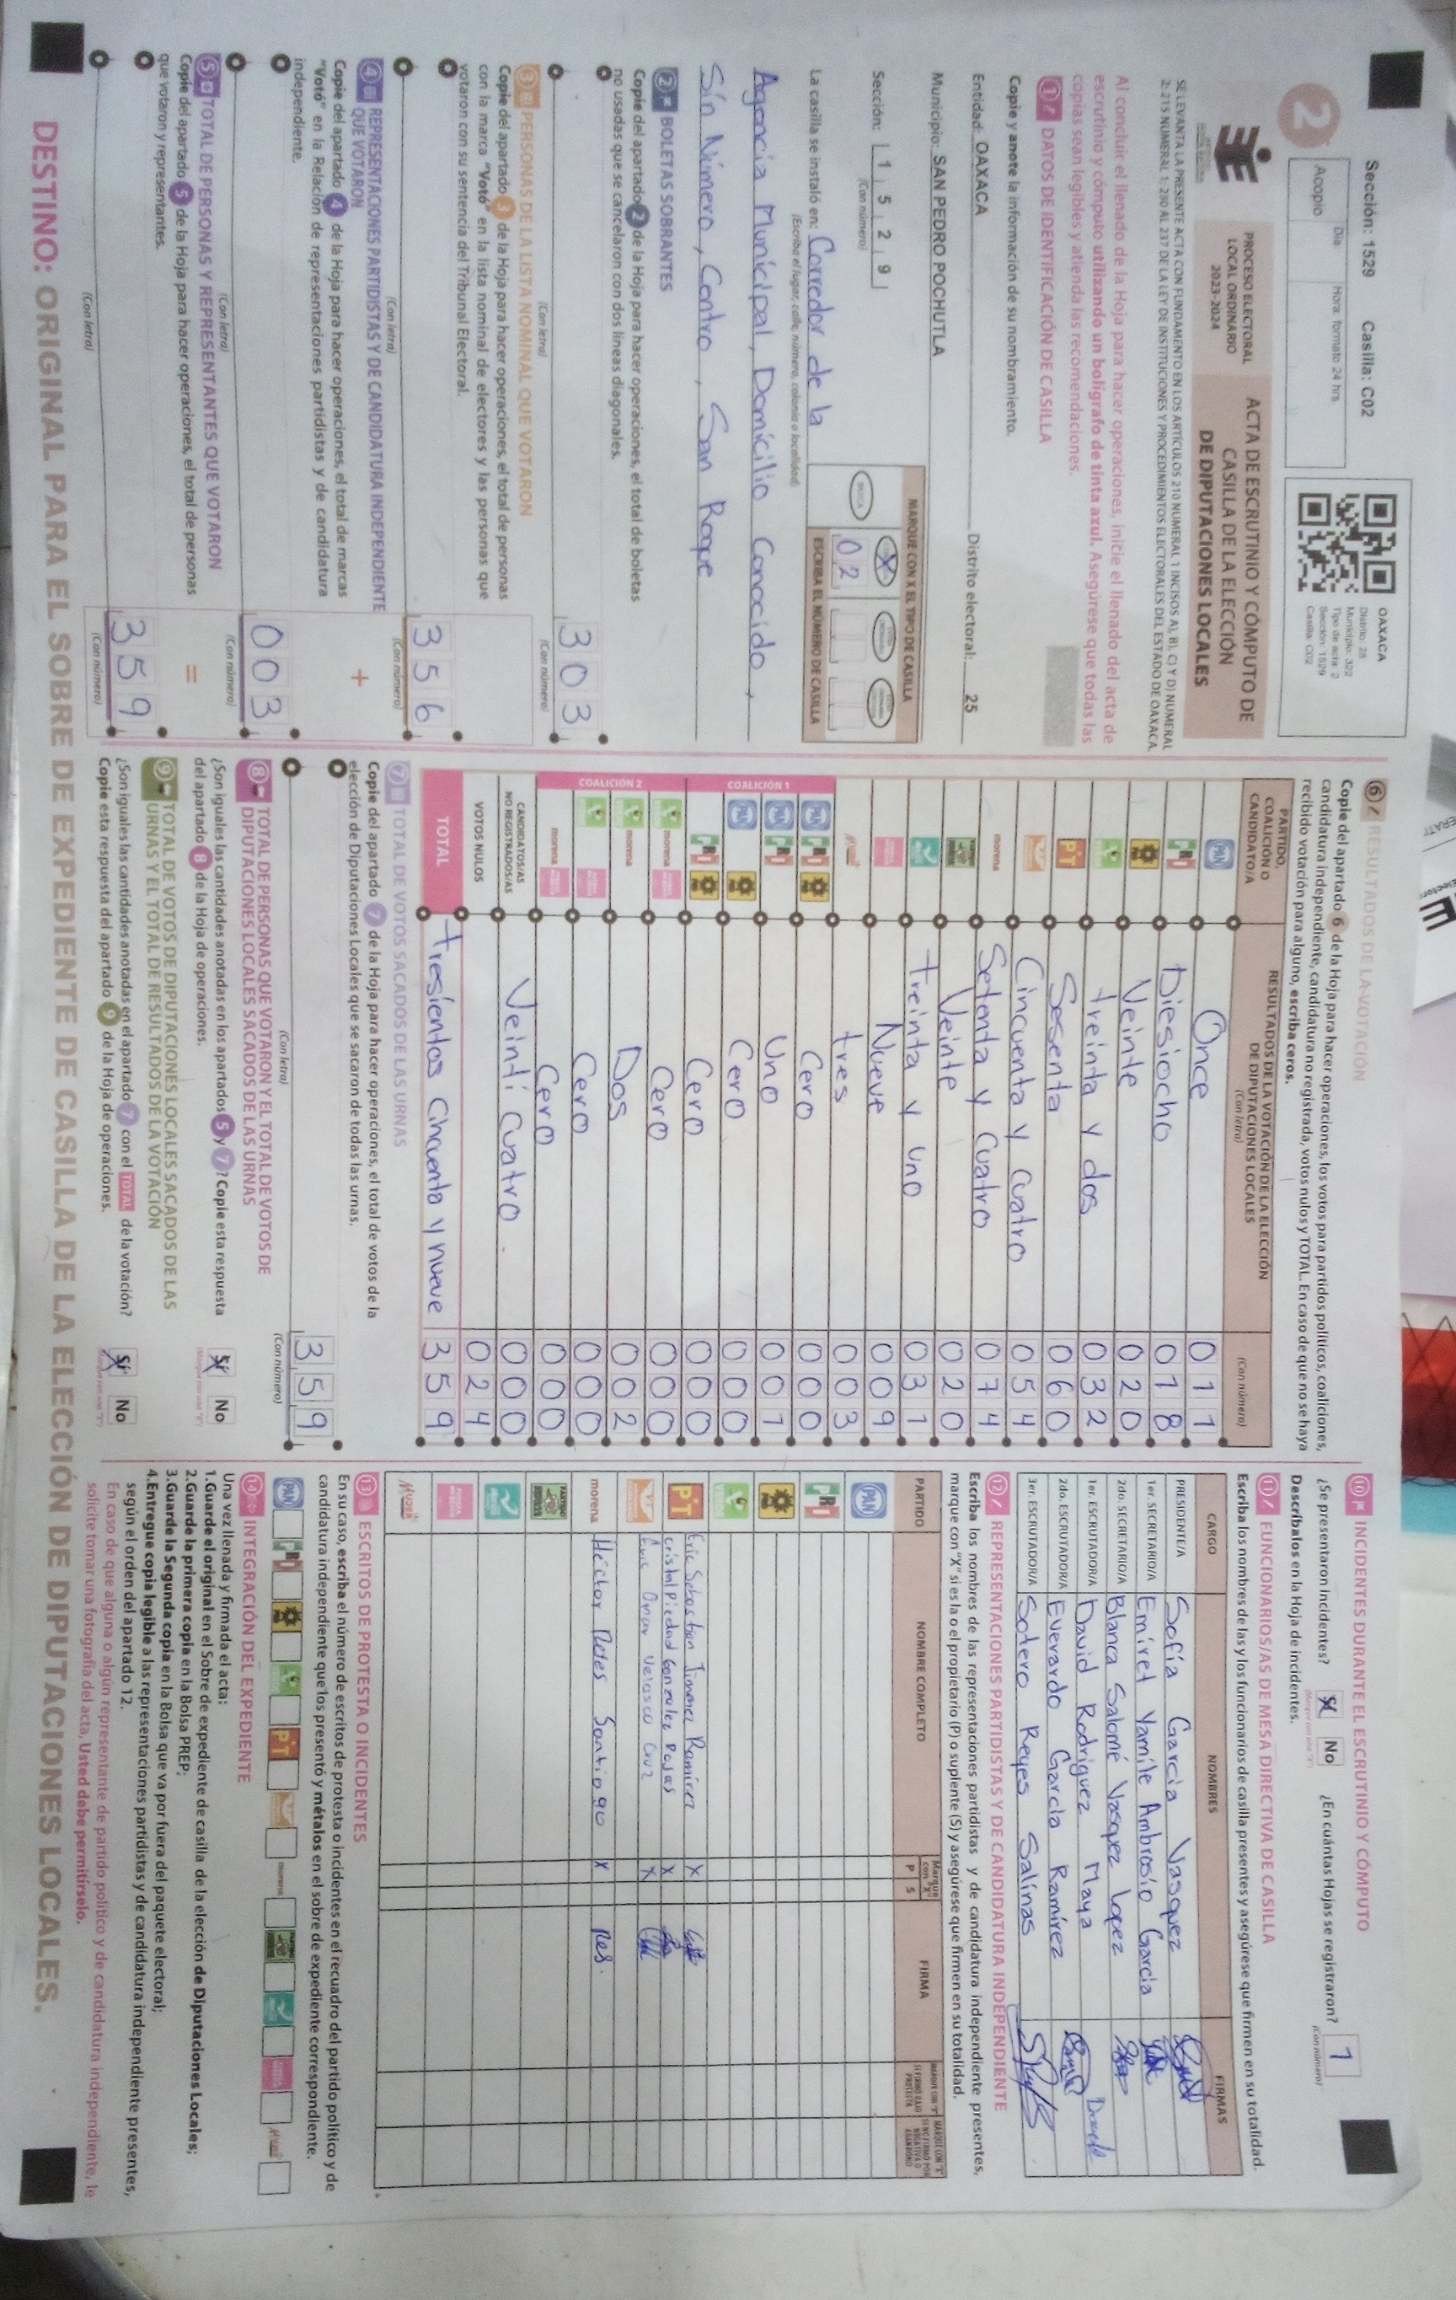 Sección: 1529 Casilla: C02
Día Hora: formato 24 hrs.
2
Acopio
OAXACA
Distrito: 25
Municipio: 322
Tipo de acta: 2
Sección: 1529
Casilla: C02
PROCESO ELECTORAL
LOCAL ORDINARIO
2023-2024
ACTA DE ESCRUTINIO Y CÓMPUTO DE
CASILLA DE LA ELECCIÓN
DE DIPUTACIONES LOCALES
SE LEVANTA LA PRESENTE ACTA CON FUNDAMENTO EN LOS ARTÍCULOS 210 NUMERAL 1 INCISOS A), B), C) Y D) NUMERAL
2; 215 NUMERAL 1; 230 AL 237 DE LA LEY DE INSTITUCIONES Y PROCEDIMIENTOS ELECTORALES DEL ESTADO DE OAXACA.
Al concluir el llenado de la Hoja para hacer operaciones, inicie el llenado del acta de
escrutinio y cómputo utilizando un bolígrafo de tinta azul. Asegúrese que todas las
copias sean legibles y atienda las recomendaciones.
1 DATOS DE IDENTIFICACIÓN DE CASILLA
Copie y anote la información de su nombramiento.
Entidad: OAXACA Distrito electoral: 25
Municipio: SAN PEDRO POCHUTLA
MARQUE CON X EL TIPO DE CASILLA
Sección: 1 5 2 9
(Con número)
BÁSICA
X
0 2
ESCRIBA EL NÚMERO DE CASILLA
La casilla se instaló en: Corredor de la
(Escriba el lugar, calle, número, colonia o localidad)
Agencia Municipal, Domicilio Conocido,
Sin Número, Centro, San Roque
2 BOLETAS SOBRANTES
Copie del apartado 2 de la Hoja para hacer operaciones, el total de boletas
no usadas que se cancelaron con dos líneas diagonales.
303
(Con letra) (Con número)
3 PERSONAS DE LA LISTA NOMINAL QUE VOTARON
Copie del apartado 3 de la Hoja para hacer operaciones, el total de personas
con la marca "Votó" en la lista nominal de electores y las personas que
votaron con su sentencia del Tribunal Electoral.
356
(Con letra) (Con número)
4 REPRESENTACIONES PARTIDISTAS Y DE CANDIDATURA INDEPENDIENTE
QUE VOTARON
+
Copie del apartado 4 de la Hoja para hacer operaciones, el total de marcas
"Votó" en la Relación de representaciones partidistas y de candidatura
independiente.
003
(Con letra) (Con número)
5 TOTAL DE PERSONAS Y REPRESENTANTES QUE VOTARON
=
Copie del apartado 5 de la Hoja para hacer operaciones, el total de personas
que votaron y representantes.
359
(Con letra) (Con número)
6 RESULTADOS DE LA VOTACIÓN
Copie del apartado 6 de la Hoja para hacer operaciones, los votos para partidos políticos, coaliciones,
candidatura independiente, candidatura no registrada, votos nulos y TOTAL. En caso de que no se haya
recibido votación para alguno, escriba ceros.
PARTIDO,
COALICIÓN O
CANDIDATO/A
RESULTADOS DE LA VOTACIÓN DE LA ELECCIÓN
DE DIPUTACIONES LOCALES
(Con letra)
(Con número)
PAN Once 011
PRI Diesiocho 018
Veinte 020
treinta y dos 032
PT Sesenta 060
Cincuenta y cuatro 054
morena Setenta y Cuatro 074
Veinte 020
treinta y uno 031
Nueve 009
tres 003
COALICIÓN 1
PAN PRI Cero 000
PAN PRI Uno 001
PAN Cero 000
PRI Cero 000
COALICIÓN 2
morena Cero 000
morena Dos 002
Cero 000
morena Cero 000
CANDIDATOS/AS
NO REGISTRADOS/AS
Veinti Cuatro 000
VOTOS NULOS 024
TOTAL tresientos Cincuenta y nueve 359
7 TOTAL DE VOTOS SACADOS DE LAS URNAS
Copie del apartado 7 de la Hoja para hacer operaciones, el total de votos de la
elección de Diputaciones Locales que se sacaron de todas las urnas.
359
(Con letra) (Con número)
8 TOTAL DE PERSONAS QUE VOTARON Y EL TOTAL DE VOTOS DE
DIPUTACIONES LOCALES SACADOS DE LAS URNAS
¿Son iguales las cantidades anotadas en los apartados 5 y 7? Copie esta respuesta
del apartado 8 de la Hoja de operaciones.
Sí No
9 TOTAL DE VOTOS DE DIPUTACIONES LOCALES SACADOS DE LAS
URNAS Y EL TOTAL DE RESULTADOS DE LA VOTACIÓN
¿Son iguales las cantidades anotadas en el apartado 7 con el TOTAL de la votación?
Copie esta respuesta del apartado 9 de la Hoja de operaciones.
Sí No
10 INCIDENTES DURANTE EL ESCRUTINIO Y CÓMPUTO
¿Se presentaron incidentes? Sí No ¿En cuántas Hojas se registraron? 1
(Con número)
Descríbalos en la Hoja de incidentes.
11 FUNCIONARIOS/AS DE MESA DIRECTIVA DE CASILLA
Escriba los nombres de las y los funcionarios de casilla presentes y asegúrese que firmen en su totalidad.
CARGO NOMBRES FIRMAS
PRESIDENTE/A Sofía García Vasquez
1er. SECRETARIO/A Emiret Yamile Ambrosio García
2do. SECRETARIO/A Blanca Salomé Vasquez Lopez
1er. ESCRUTADOR/A David Rodriguez Maya
2do. ESCRUTADOR/A Everardo García Ramírez
3er. ESCRUTADOR/A Sotero Reyes Salinas
12 REPRESENTACIONES PARTIDISTAS Y DE CANDIDATURA INDEPENDIENTE
Escriba los nombres de las representaciones partidistas y de candidatura independiente presentes,
marque con "X" si es la o el propietario (P) o suplente (S) y asegúrese que firmen en su totalidad.
PARTIDO NOMBRE COMPLETO P S FIRMA
PAN
PRI
PT Eric Sebastian Jimenez Ramírez X
Cristal Piedad Gonzalez Rojas X
Luis Omar Velasco Cruz X
morena Héctor Reyes Santiago X
13 ESCRITOS DE PROTESTA O INCIDENTES
En su caso, escriba el número de escritos de protesta o incidentes en el recuadro del partido político y de
candidatura independiente que los presentó y métalos en el sobre de expediente correspondiente.
PAN PRI PT morena
14 INTEGRACIÓN DEL EXPEDIENTE
Una vez llenada y firmada el acta:
1.Guarde el original en el Sobre de expediente de casilla de la elección de Diputaciones Locales;
2.Guarde la primera copia en la Bolsa PREP;
3.Guarde la Segunda copia en la Bolsa que va por fuera del paquete electoral;
4.Entregue copia legible a las representaciones partidistas y de candidatura independiente presentes,
según el orden del apartado 12.
En caso de que alguna o algún representante de partido político y de candidatura independiente, le
solicite tomar una fotografía del acta, Usted debe permitírselo.
DESTINO: ORIGINAL PARA EL SOBRE DE EXPEDIENTE DE CASILLA DE LA ELECCIÓN DE DIPUTACIONES LOCALES.